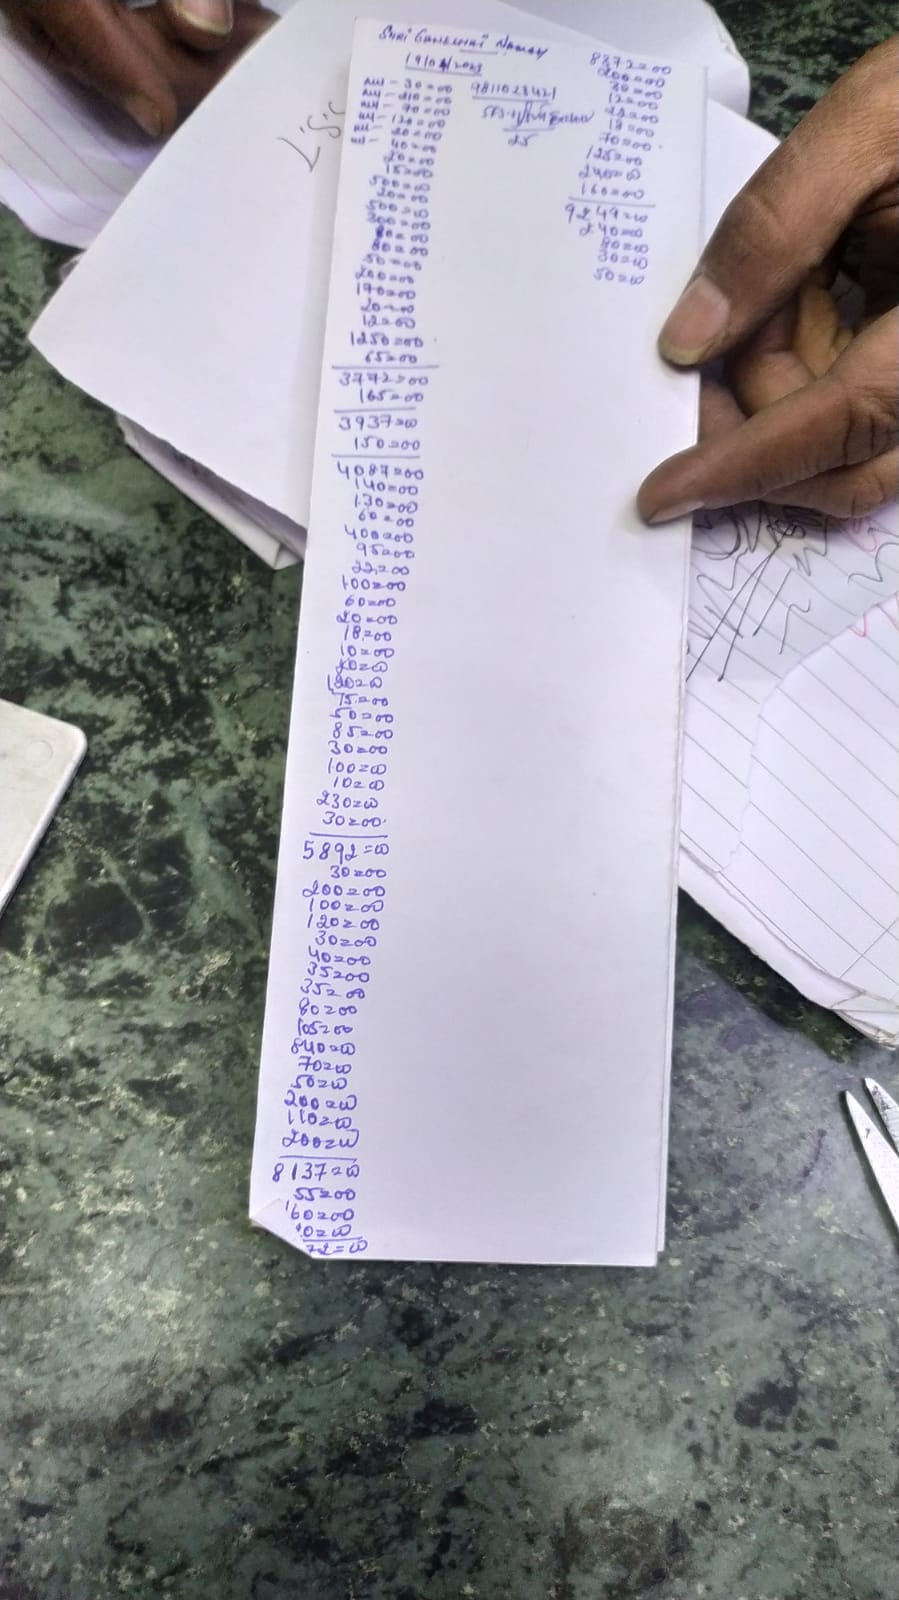 SHRI GANESHAI NAMAY
30=00
210=00
70=00
120=00
20=00
40=00
20=00
15=00
500=00
20=00
500=00
300=00
80=00
50=00
200=00
170=00
20=00
12=00
1250=00
65=00
3772=00
165=00
3937=00
150=00
4087=00
140=00
130=00
60=00
400=00
95=00
22=00
100=00
60=00
20=00
18=00
10=00
120=00
75=00
50=00
85=00
30=00
100=00
10=00
230=00
30=00
5892=00
30=00
200=00
100=00
120=00
30=00
40=00
35=00
35=00
80=00
105=00
840=00
70=00
50=00
200=00
110=00
200=00
8137=00
55=00
160=00
9811028421
25
8372=00
200=00
30=00
12=00
22=00
18=00
70=00
125=00
240=00
160=00
9249=00
240=00
80=00
30=00
50=00